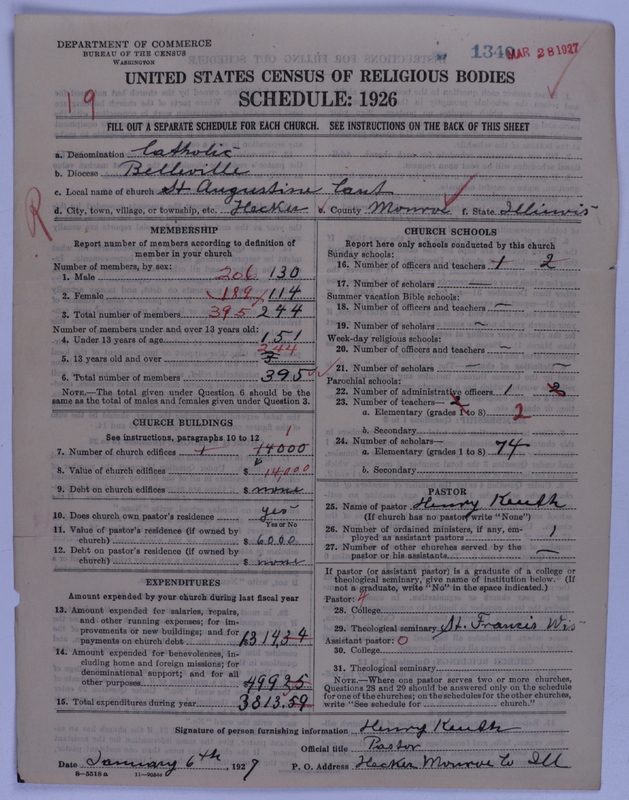 DEPARTMENT OF COMMERCE
BUREAU OF THE CENSUS
WASHINGTON
1340
MAR 28 1927
UNITED STATES CENSUS OF RELIGIOUS BODIES
19
SCHEDULE: 1926
FILL OUT A SEPARATE SCHEDULE FOR EACH CHURCH. SEE INSTRUCTIONS ON THE BACK OF THIS SHEET
a. Denomination Catholic
b. Diocese Belleville
c. Local name of church St Augustine Cant
R
d. City, town, village, or township, etc. Hecker e. County Monroe f. State Illinois
MEMBERSHIP
Report number of members according to definition of member in your church
Number of members, by sex:
1. Male 206 130
2. Female 189 114
3. Total number of members 395 244
Number of members under and over 13 years old:
4. Under 13 years of age 151
5. 13 years old and over 244
6. Total number of members 395
NOTE.—The total given under Question 6 should be the same as the total of males and females given under Question 3.
CHURCH BUILDINGS
See instructions, paragraphs 10 to 12
7. Number of church edifices 1 14000 1
8. Value of church edifices $ 14,000
9. Debt on church edifices $ none
10. Does church own pastor's residence yes
Yes or No
11. Value of pastor's residence (if owned by church) $ 6000
12. Debt on pastor's residence (if owned by church) $ none
EXPENDITURES
Amount expended by your church during last fiscal year
13. Amount expended for salaries, repairs, and other running expenses; for improvements or new buildings; and for payments on church debt 3314,34
14. Amount expended for benevolences, including home and foreign missions; for denominational support; and for all other purposes 499 25
15. Total expenditures during year 3813.59
CHURCH SCHOOLS
Report here only schools conducted by this church
Sunday schools:
16. Number of officers and teachers 1 2
17. Number of scholars —
Summer vacation Bible schools:
18. Number of officers and teachers —
19. Number of scholars ~
Week-day religious schools:
20. Number of officers and teachers —
21. Number of scholars — —
Parochial schools:
22. Number of administrative officers 1
23. Number of teachers— 2
a. Elementary (grades 1 to 8) 2
b. Secondary
24. Number of scholars—
a. Elementary (grades 1 to 8) 74
b. Secondary
PASTOR
25. Name of pastor Henry Keuth
(If church has no pastor write "None")
26. Number of ordained ministers, if any, employed as assistant pastors 1
27. Number of other churches served by the pastor or his assistants —
If pastor (or assistant pastor) is a graduate of a college or theological seminary, give name of institution below. (If not a graduate, write "No" in the space indicated.)
Pastor: 4
28. College
29. Theological seminary St. Francis Wis
Assistant pastor: 0
30. College
31. Theological seminary
NOTE.—Where one pastor serves two or more churches, Questions 28 and 29 should be answered only on the schedule for one of the churches; on the schedules for the other churches, write "See schedule for church."
Signature of person furnishing information Henry Keuth
Official title Pastor
Date January 6th, 1927 P. O. Address Hecker Monroe Co Ill
8—5518 a